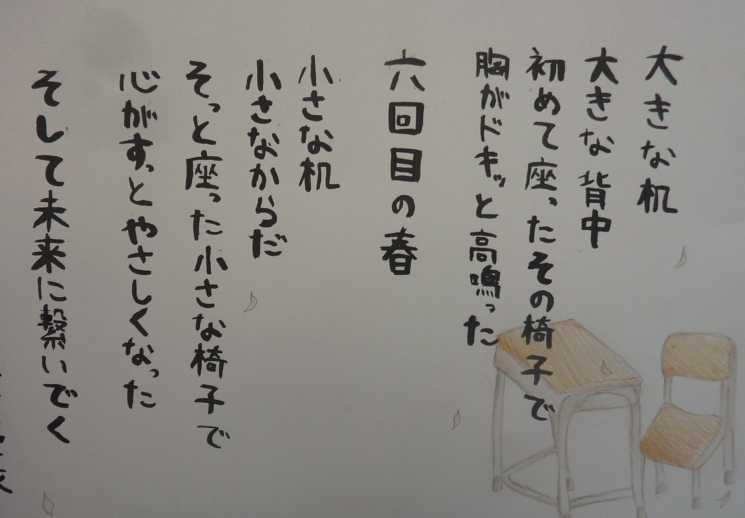 大きな机
大きな背中
初めて座ったその椅子で
胸がドキッと高鳴った
六回目の春
小さな机
小さなからだ
そっと座った小さな椅子で
心がすっとやさしくなった
そして未来に繋いでく